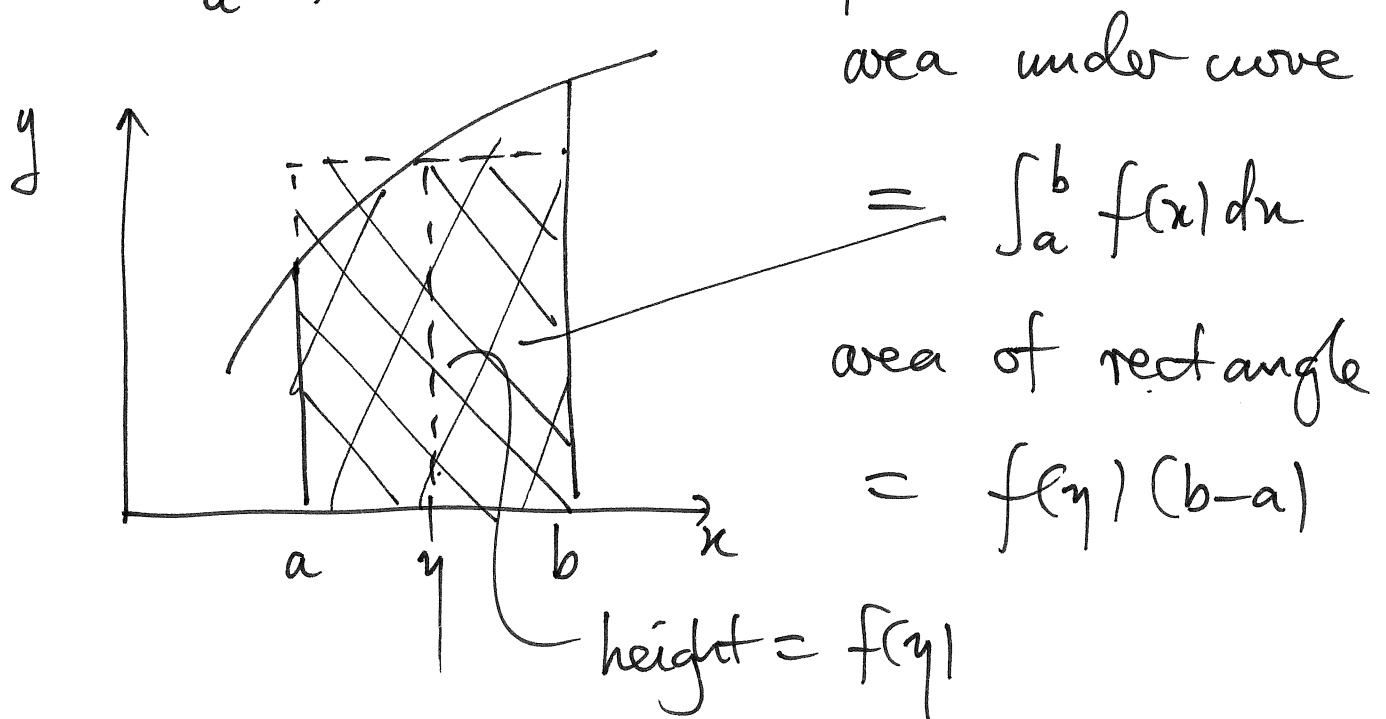 a
area under curve
y
= ∫_a^b f(x) dx
area of rectangle
= f(η) (b-a)
x
a η b
height = f(η)